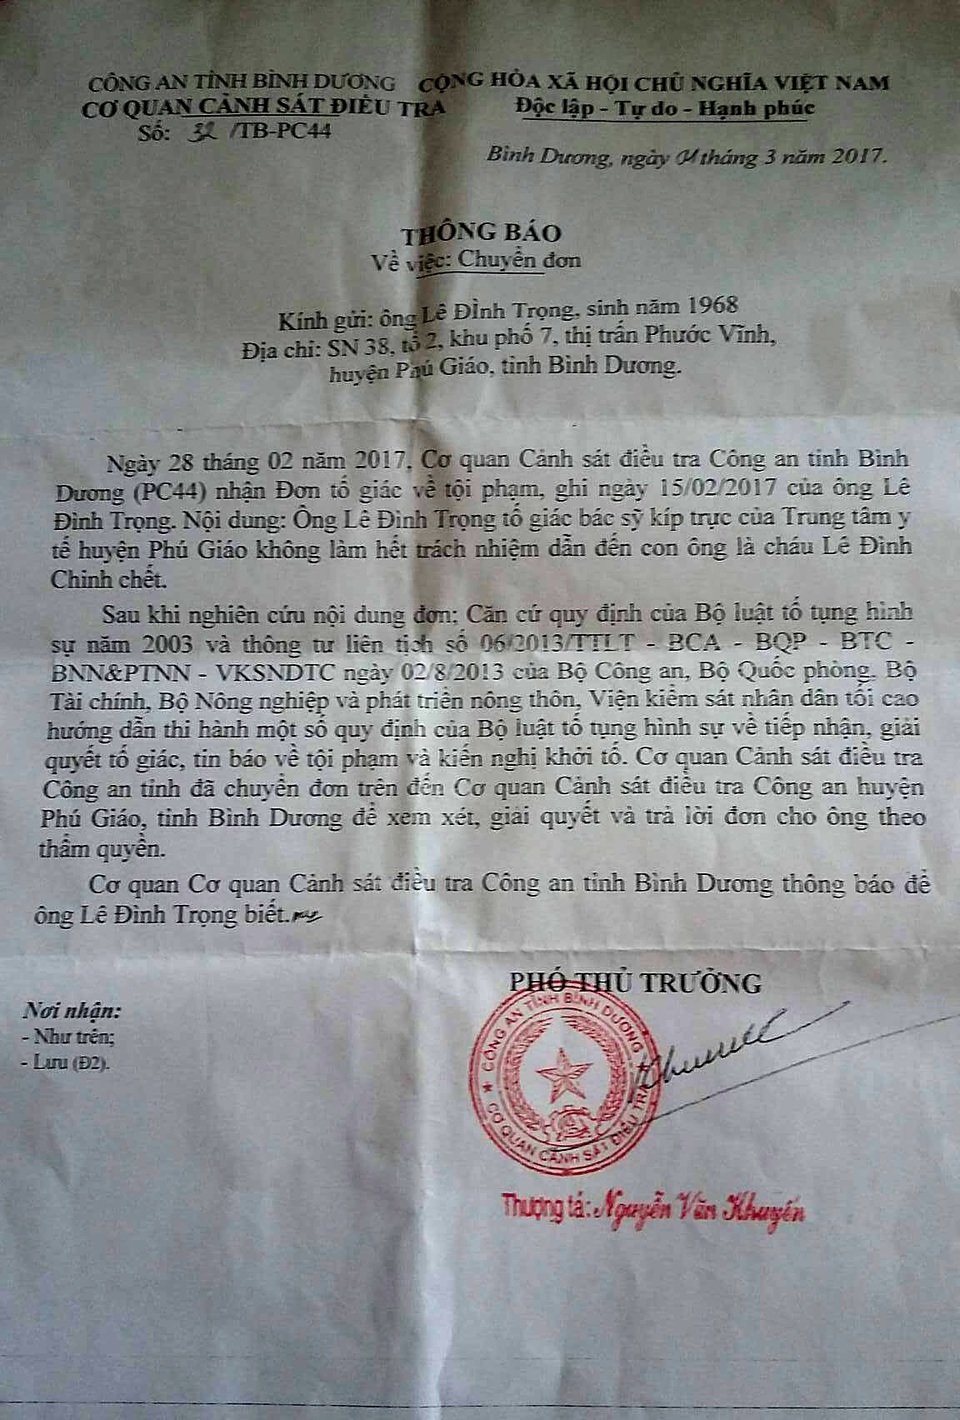 CÔNG AN TỈNH BÌNH DƯƠNG CỘNG HÒA XÃ HỘI CHỦ NGHĨA VIỆT NAM
CƠ QUAN CẢNH SÁT ĐIỀU TRA Độc lập - Tự do - Hạnh phúc
Số: 32 /TB-PC44
Bình Dương, ngày 01 tháng 3 năm 2017.
THÔNG BÁO
Về việc: Chuyển đơn
Kính gửi: ông Lê Đình Trọng, sinh năm 1968
Địa chỉ: SN 38, tổ 2, khu phố 7, thị trấn Phước Vĩnh,
huyện Phú Giáo, tỉnh Bình Dương.
Ngày 28 tháng 02 năm 2017, Cơ quan Cảnh sát điều tra Công an tỉnh Bình
Dương (PC44) nhận Đơn tố giác về tội phạm, ghi ngày 15/02/2017 của ông Lê
Đình Trọng. Nội dung: Ông Lê Đình Trọng tố giác bác sỹ kíp trực của Trung tâm y
tế huyện Phú Giáo không làm hết trách nhiệm dẫn đến con ông là cháu Lê Đình
Chinh chết.
Sau khi nghiên cứu nội dung đơn; Căn cứ quy định của Bộ luật tố tụng hình
sự năm 2003 và thông tư liên tịch số 06/2013/TTLT - BCA - BQP - BTC -
BNN&PTNN - VKSNDTC ngày 02/8/2013 của Bộ Công an, Bộ Quốc phòng, Bộ
Tài chính, Bộ Nông nghiệp và phát triển nông thôn, Viện kiểm sát nhân dân tối cao
hướng dẫn thi hành một số quy định của Bộ luật tố tụng hình sự về tiếp nhận, giải
quyết tố giác, tin báo về tội phạm và kiến nghị khởi tố. Cơ quan Cảnh sát điều tra
Công an tỉnh đã chuyển đơn trên đến Cơ quan Cảnh sát điều tra Công an huyện
Phú Giáo, tỉnh Bình Dương để xem xét, giải quyết và trả lời đơn cho ông theo
thẩm quyền.
Cơ quan Cơ quan Cảnh sát điều tra Công an tỉnh Bình Dương thông báo để
ông Lê Đình Trọng biết.
PHÓ THỦ TRƯỞNG
Nơi nhận:
- Như trên;
- Lưu (Đ2).
CÔNG AN TỈNH BÌNH DƯƠNG
CƠ QUAN CẢNH SÁT ĐIỀU TRA
Thượng tá: Nguyễn Văn Khuyến